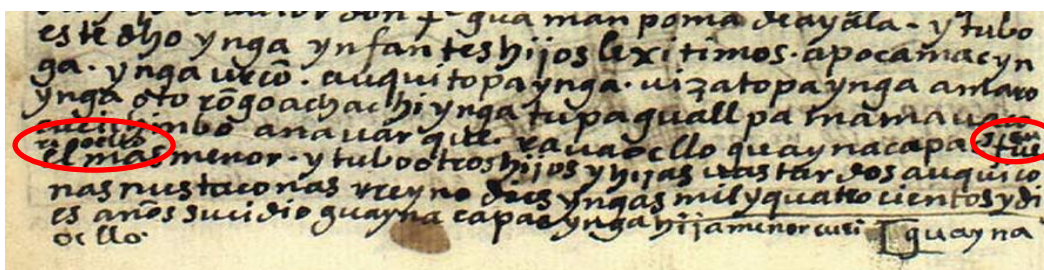 este dho ynga ynfantes hijos lexitimos. apocamac yn
ga. ynga urcō. auquitopa ynga. uiza topa ynga amaro
ynga oto rōgo achachi ynga tupa guallpa mama uaco
cuci chinbo ana uarque. raua ocllo guayna capac
el mas menor. y tubo otros hijos y hijas uastardos auquico
nas nustaconas rreyno dies yngas mil y quatrocientos y di
es años sucidio guayna capac ynga hija menor cuci guayna
ocllo.